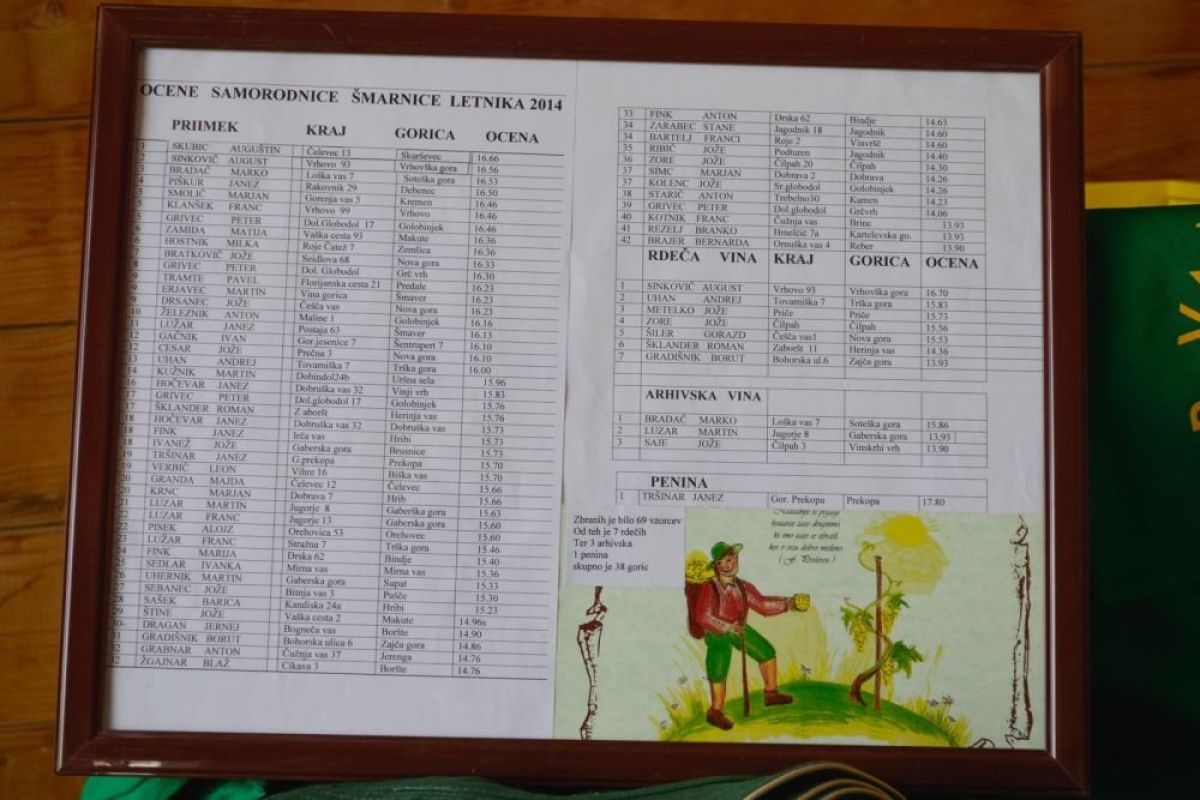 OCENE SAMORODNICE ŠMARNICE LETNIKA 2014
PRIIMEK KRAJ GORICA OCENA
1 SKUBIC AUGUŠTIN Čelevec 13 Škurševec 16.66
2 SINKOVIČ AUGUST Vrhovo 93 Vrhovška gora 16.56
3 BRADAČ MARKO Loška vas 7 Soteška gora 16.53
4 PIŠKUR JANEZ Rakovnik 29 Debenec 16.50
5 SMOLIČ MARJAN Gorenja vas 5 Kremen 16.46
5 KLANŠEK FRANC Vrhovo 99 Vrhovo 16.46
5 GRIVEC PETER Dol.Globodol 17 Golobinjek 16.46
6 ZAMIDA MATIJA Vaška cesta 93 Makute 16.36
6 HOSTNIK MILKA Roje Čatež 7 Zemlica 16.36
7 BRATKOVIČ JOŽE Seidlova 68 Nova gora 16.33
8 GRIVEC PETER Dol. Globodol Grč vrh 16.30
9 TRAMTE PAVEL Florijanska cesta 21 Predale 16.23
9 ERJAVEC MARTIN Vina gorica Šmaver 16.23
9 DRSANEC JOŽE Češča vas Nova gora 16.23
10 ŽELEZNIK ANTON Maline 1 Golobinjek 16.16
11 LUŽAR JANEZ Postaja 63 Šmaver 16.13
12 GAČNIK IVAN Gor.jesenice 7 Šentrupert 7 16.10
12 CESAR JOŽE Prečna 3 Nova gora 16.10
13 UHAN ANDREJ Tovarniška 7 Trška gora 16.00
14 KUŽNIK MARTIN Dobindol24b Uršna sela 15.96
16 HOČEVAR JANEZ Dobruška vas 32 Vinji vrh 15.83
17 GRIVEC PETER Dol.globodol 17 Golobinjek 15.76
17 ŠKLANDER ROMAN Z aboršt Herinja vas 15.76
18 HOČEVAR JANEZ Dobruška vas 32 Dobruška vas 15.73
18 FINK JANEZ Irča vas Hribi 15.73
18 IVANEŽ JOŽE Gaberska gora Brusnice 15.73
19 TRŠINAR JANEZ G.prekopa Prekopa 15.70
19 VERBIČ LEON Vihre 16 Biška vas 15.70
20 GRANDA MAJDA Čelevec 12 Čelevec 15.66
20 KRNC MARJAN Dobrava 7 Hrib 15.66
21 LUZAR MARTIN Jugorje 8 Gaberška gora 15.63
22 LUZAR FRANC Jugorje 13 Gaberska gora 15.60
22 PISEK ALOJZ Orehovica 53 Orehovec 15.60
23 LUŽAR FRANC Stražna 7 Trška gora 15.46
24 FINK MARIJA Drska 62 Bindje 15.40
25 SEDLAR IVANKA Mirna vas Mirna vas 15.36
26 UHERNIK MARTIN Gaberska gora Suput 15.33
27 SEBANEC JOŽE Bitnja vas 3 Pušče 15.30
28 SAŠEK BARICA Kandiska 24a Hribi 15.23
29 ŠTINE JOŽE Vaška cesta 2 Makute 14.96s
30 DRAGAN JERNEJ Bogneča vas Boršte 14.90
31 GRADIŠNIK BORUT Bohorska ulica 6 Zajča gora 14.86
32 GRABNAR ANTON Čužnja vas 37 Jerenga 14.76
32 ŽGAJNAR BLAŽ Cikava 3 Boršte 14.76
33 FINK ANTON Drska 62 Bindje 14.63
34 ZARABEC STANE Jagodnik 18 Jagodnik 14.60
34 BARTELJ FRANCI Roje 2 Vinvršč 14.60
35 RIBIČ JOŽE Podturen Jagodnik 14.40
36 ZORE JOŽE Čilpah 20 Čilpah 14.30
37 SIMC MARJAN Dobrava 2 Dobrava 14.26
37 KOLENC JOŽE Sr.globodol Golobinjek 14.26
38 STARIČ ANTON Trebelno30 Kamen 14.23
39 GRIVEC PETER Dol.globodol Grčvrh 14.06
40 KOTNIK FRANC Čužnja vas Brine 13.93
41 REZELJ BRANKO Hmelčič 7a Kartelevska go. 13.93
42 BRAJER BERNARDA Ornuška vas 4 Reber 13.90
RDEČA VINA KRAJ GORICA OCENA
1 SINKOVIČ AUGUST Vrhovo 93 Vrhovška gora 16.70
2 UHAN ANDREJ Tovarniška 7 Trška gora 15.83
3 METELKO JOŽE Priče Priče 15.73
4 ZORE JOŽE Čilpah Čilpah 15.56
5 ŠILER GORAZD Češča vas1 Nova gora 15.53
6 ŠKLANDER ROMAN Zaboršt 11 Herinja vas 14.36
7 GRADIŠNIK BORUT Bohorska ul.6 Zajča gora 13.93
ARHIVSKA VINA
1 BRADAČ MARKO Loška vas 7 Soteška gora 15.86
2 LUZAR MARTIN Jugorje 8 Gaberska gora 13,93
3 SAJE JOŽE Čilpah 3 Vinskrhi vrh 13.90
PENINA
1 TRŠINAR JANEZ Gor. Prekopa Prekopa 17.80
Zbranih je bilo 69 vzorcev
Od teh je 7 rdečih
Ter 3 arhivska
1 penina
skupno je 38 goric
ki smo zato se zbrali,
ker v srcu dobro mislimo
( F. Prešeren )